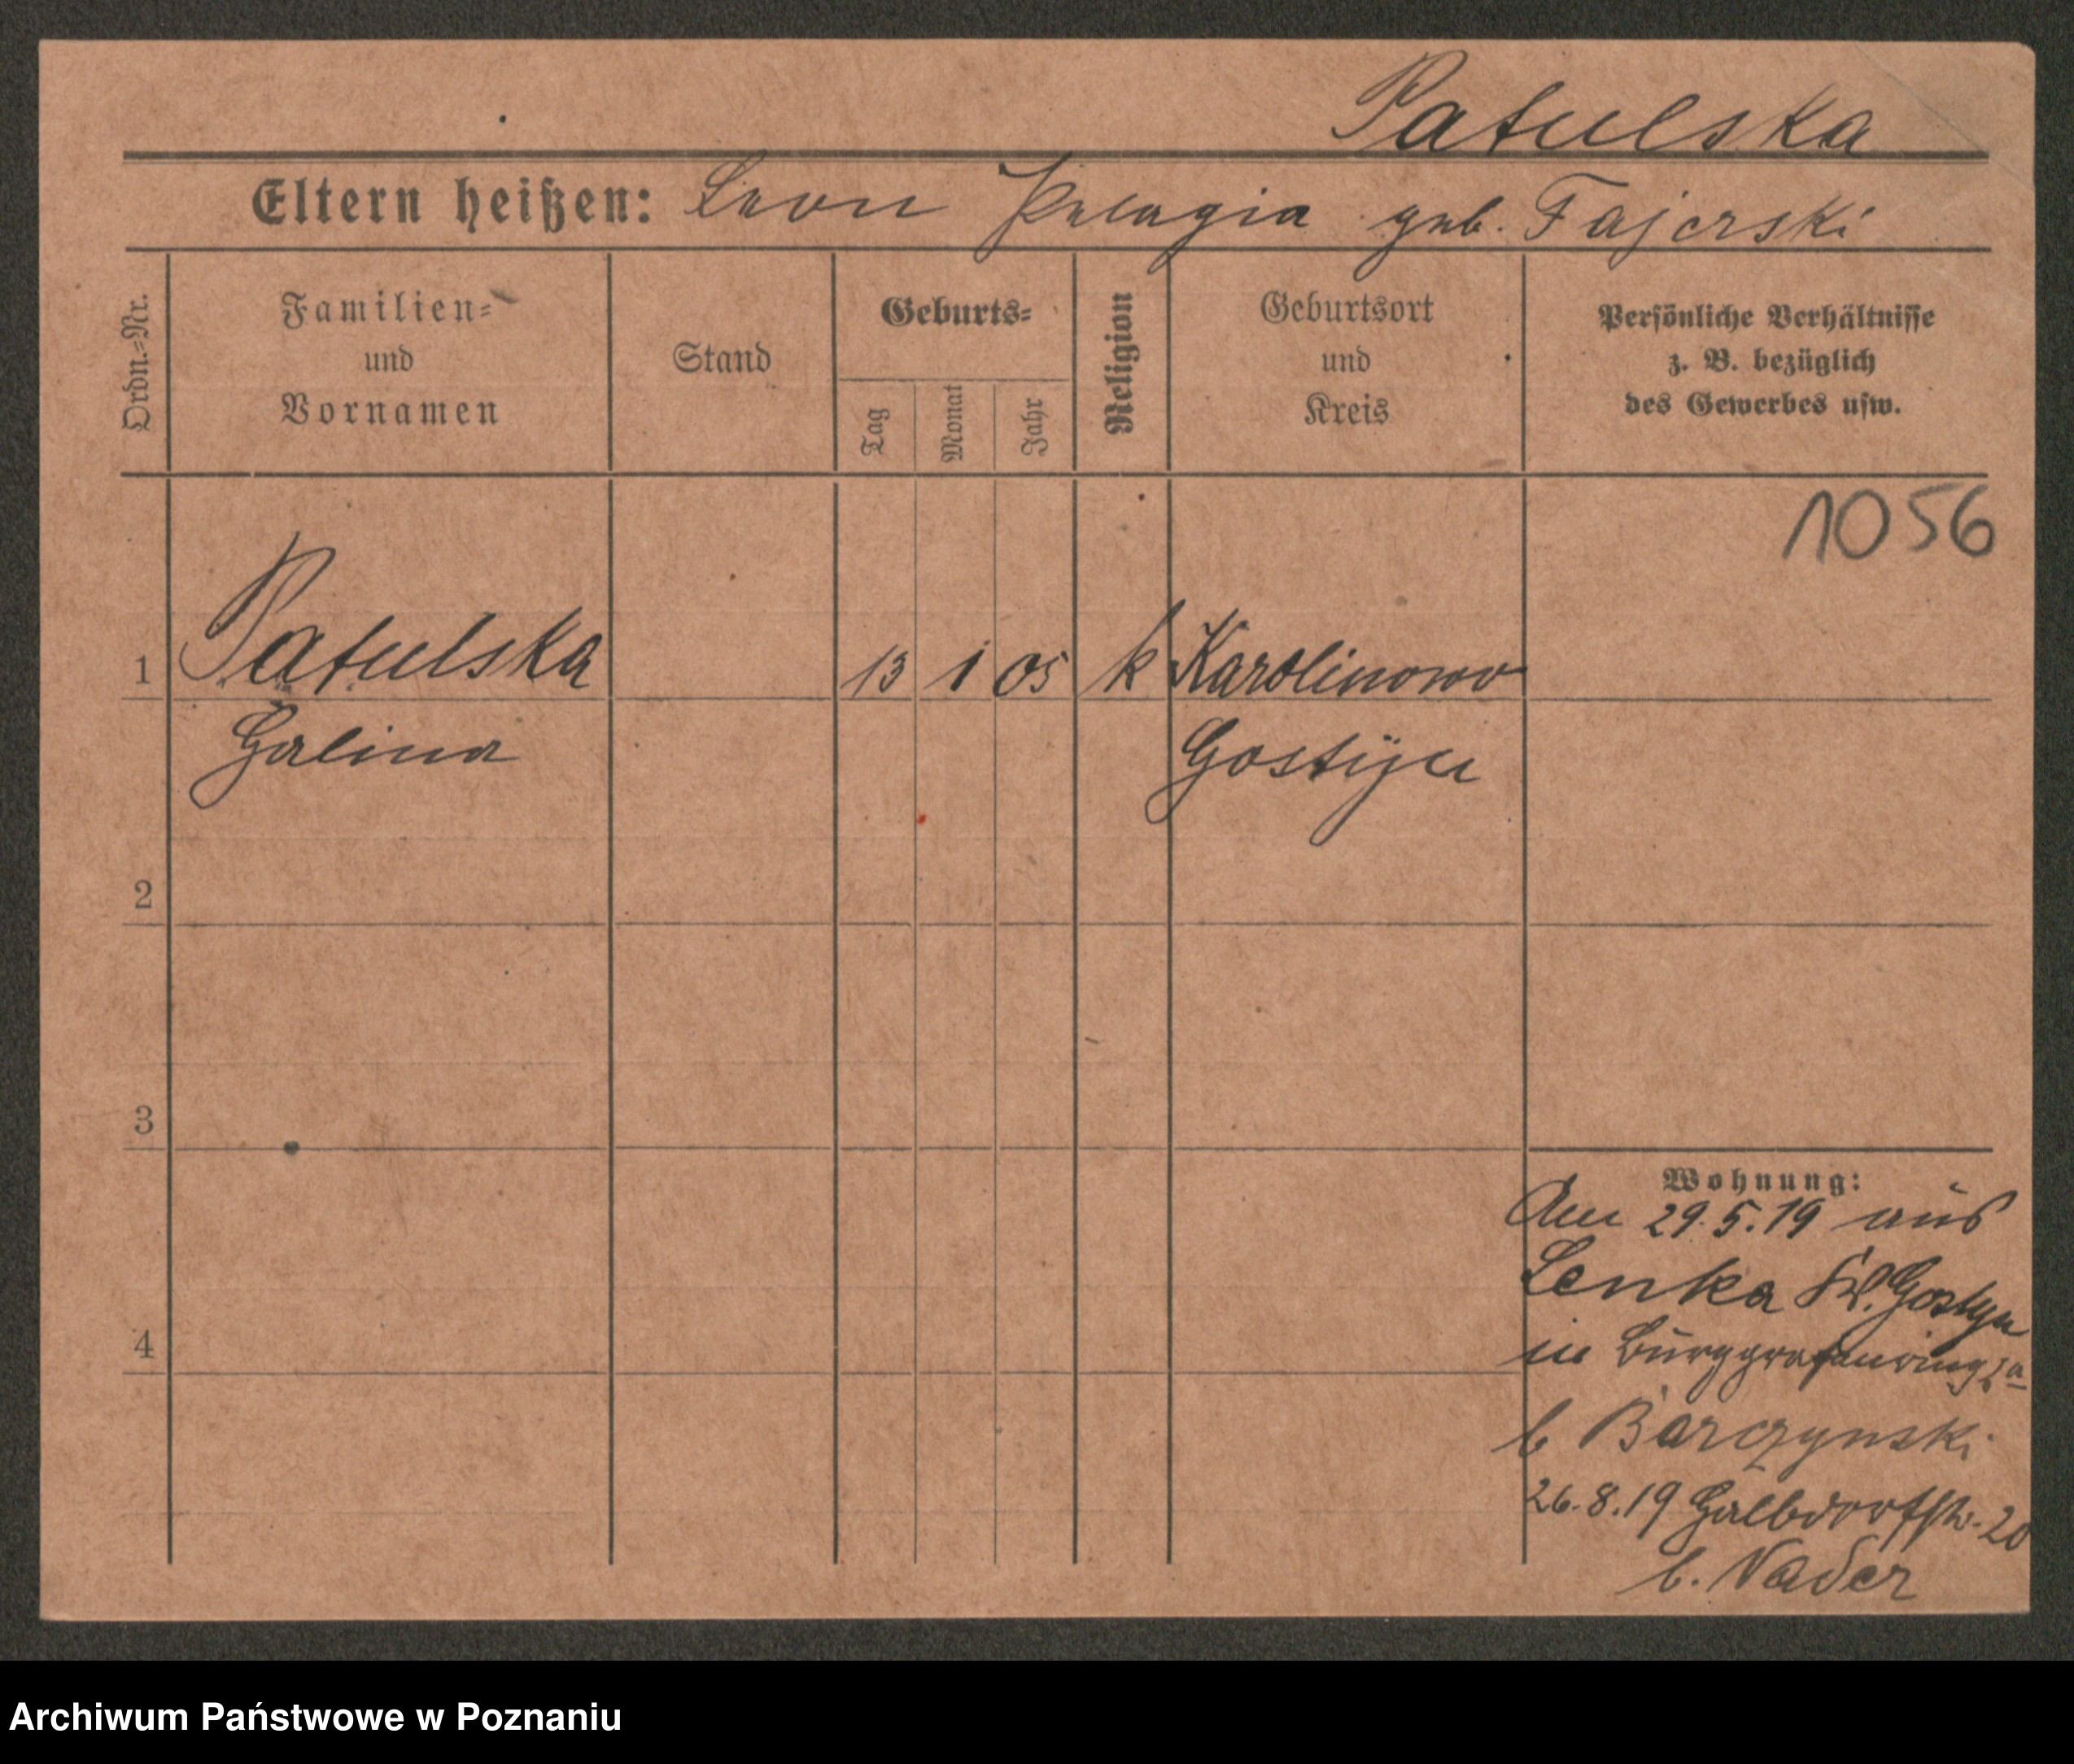 Patulska
Eltern heißen: Leon Pelagia geb. Fajerski
Ordn.-Nr.
Familien-
und
Vornamen
Stand
Geburts-
Tag
Monat
Jahr
Religion
Geburtsort
und
Kreis
Persönliche Verhältnisse
z. B. bezüglich
des Gewerbes usw.
1056
1 Patulska 13 1 05 k Karolinowo
Halina Gostyn
2
3
4
Wohnung:
Am 29.5.19 aus
Lenka Kr. Gostyn
in Burggrafenring
b Barczynski
26.8.19 Halbdorfstr. 20
b. Nader
Archiwum Państwowe w Poznaniu